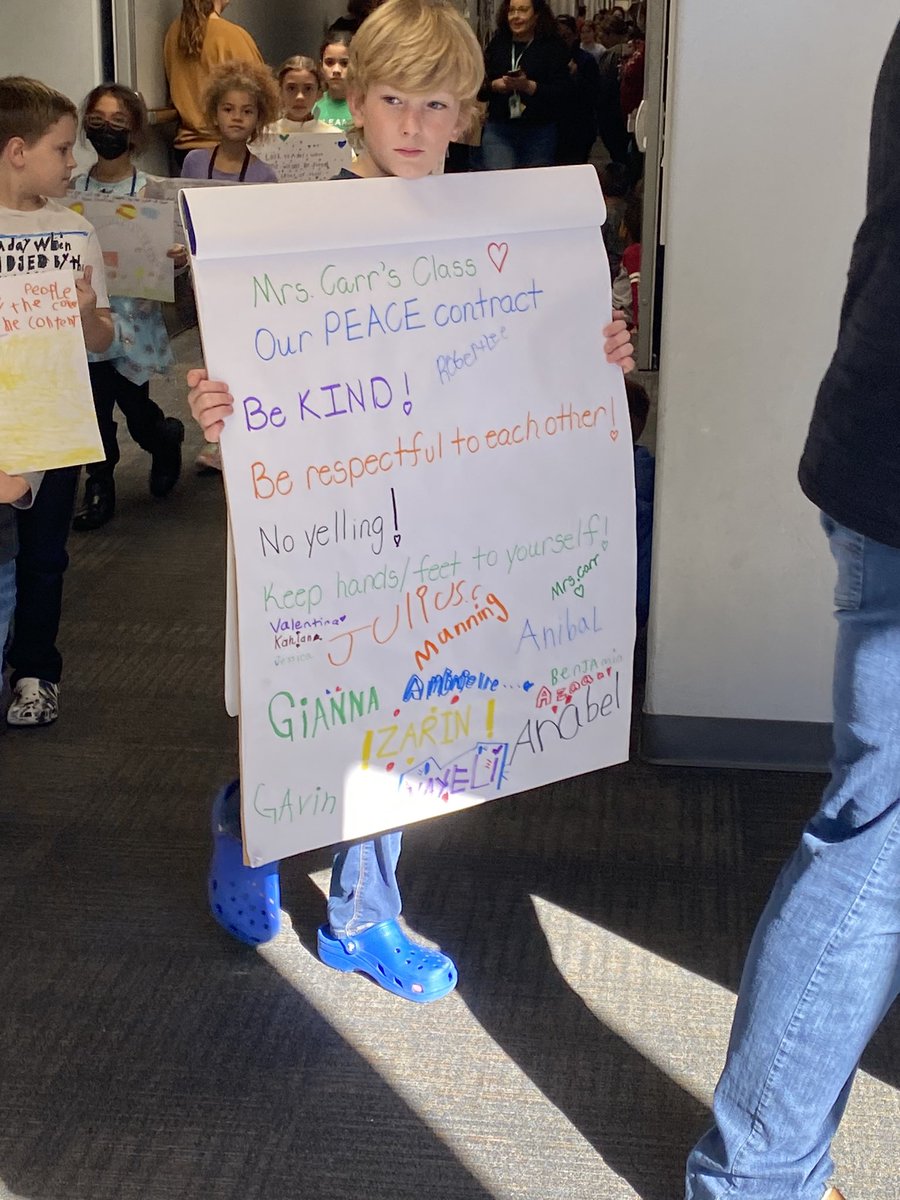 Mrs. Carr's Class
Our PEACE contract
Be KIND!
Be respectful to each other!
No yelling!
Keep hands/feet to yourself!
Mrs. Carr
Valentina
JULIUS.C
Manning
Anibal
Jessica
GiANNA
BENJAmin
ZARIN!
Anabel
GAvin
NAYELI
PEOPLE
the
the content
aday when